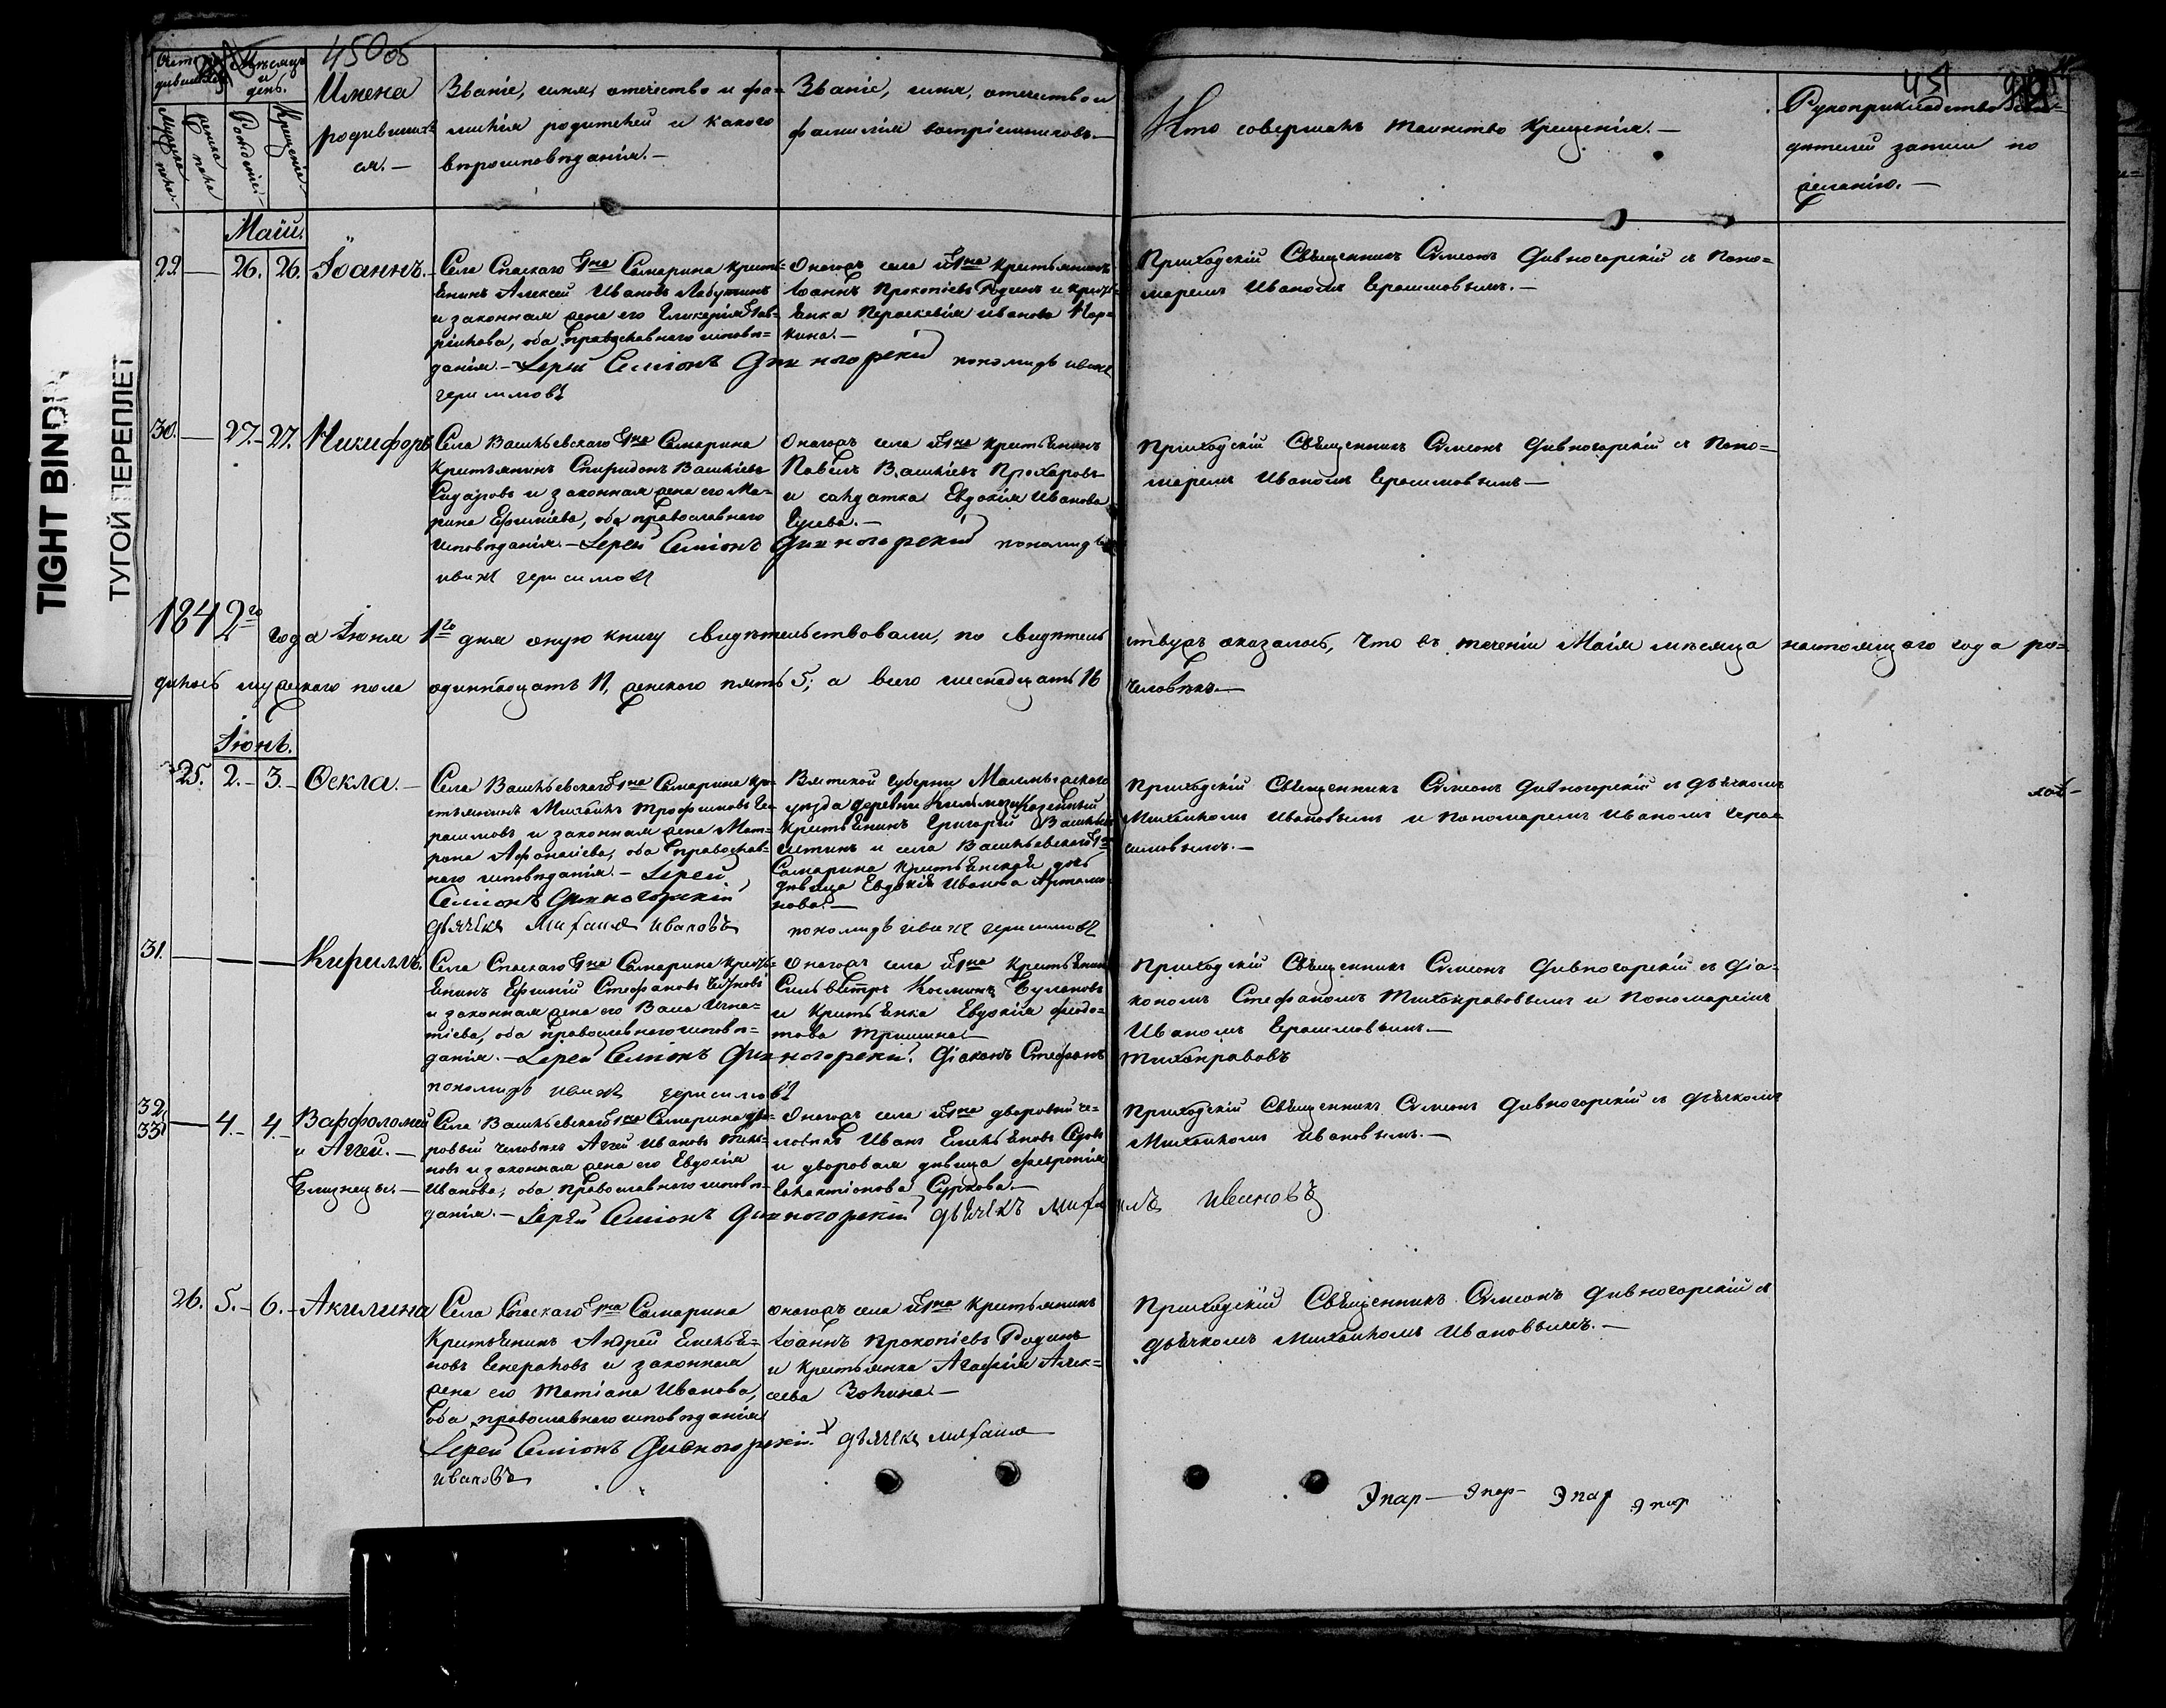 450об
451
Счетъ родившихся
Мѣсяцъ и день.
Имена родившихся.—
Званіе, имя, отечество и фа=
милія родителей и какого
вѣроисповѣданія.—
Званіе, имя, отечество и
фамилія воспріемниковъ.—
Кто совершалъ таинство крещенія.—
Рукоприкладство сви=
дѣтелей записи по
желанію.—
Мужска пола.
женска пола
Рожденія.
Крещенія.
TIGHT BINDING
ТУГОЙ ПЕРЕПЛЕТ
Маій.
29. — 26. 26. Іоаннъ.—
Села Спаскаго Гна Самарина крест=
янинъ Алексѣй Ивановъ Лабутинъ
и законная жена его Гликерія Гав=
рилова, оба православнаго исповѣ=
данія.— Іерей Симіонъ Дивногорскій пономарь иванъ
герасимовъ
Онагожъ села и Гна крестьянинъ
Іоаннъ Прокопіевъ Родинъ и кресть=
янка Параскевія Иванова Кар=
кина.—
Приходскій Священникъ Симеонъ Дивногорскій съ Поно=
маремъ Иваномъ Герасимовымъ.—
30. — 27. 27. Никифоръ
Села Васильевскаго Гна Самарина
Крестьянинъ Спиридонъ Васильевъ
Сидаровъ и законная жена его Ма=
рина Ефимова, оба православнаго
исповѣданія.— Іерей Симіонъ Дивногорскій пономарь
иванъ герасимовъ
Онагожъ села и Гна крестьянинъ
Павелъ Васильевъ Прохаровъ
и салдатка Евдокія Иванова
Гусева.—
Приходскій Священникъ Симеонъ Дивногорскій съ Поно=
маремъ Иваномъ Герасимовымъ—
1842го года Іюня 1го дня оную книгу свидѣтельствовали, по свидѣтельствужъ оказалось, что въ теченіи Маія мѣсяца настоящаго года ро=
дилось мужескаго пола одиннадцать 11, женскаго пять 5; а всего шеснадцать 16 человѣкъ.—
Іюнь.
25. 2.— 3.— Ѳекла.—
Села Васильевскаго Гна Самарина кре=
стьянинъ Михаилъ Трофимовъ Ге=
расимовъ и законная жена Мат=
рона Афонасіева, оба православ=
наго исповѣданія.— Іерей
Симіонъ Дивногорскій
дьячекъ Михаилъ ивановъ пономарь иванъ герасимовъ
Вятской губерніи Малмыжскаго
уѣзда деревни Кильмези Казенный
крестьянинъ Григорій Васильевъ
и села Васильевскаго Гна
Самарина крестьянская дочь
дѣвица Евдокія Иванова Артамо=
нова.—
Приходскій Священникъ Симеонъ Дивногорскій съ дьячкомъ
Михаиломъ Ивановымъ и Пономаремъ Иваномъ Гера=
симовымъ.—
31. — — — Кириллъ.
Села Спаскаго Гна Самарина кресть=
янинъ Ефимій Стефановъ
и законная жена его Васса Игна=
тіева, оба православнаго исповѣ=
данія.— Іерей Симіонъ Дивногорскій. Діаконъ Стефанъ Тихонравовъ
пономарь иванъ герасимовъ
Онагожъ села и Гна крестьянинъ
Сильвестръ Косминъ Булановъ
и крестьянка Евдокія Ѳедо=
това Тришина.—
Приходскій Священникъ Симеонъ Дивногорскій съ Діа=
кономъ Стефаномъ Тихонравовымъ и Пономаремъ
Иваномъ Герасимовымъ.—
32
33 — 4.— 4.— Варфоломей
и Аггей.—
Близнецы.—
Села Васильевскаго Гна Самарина дво=
ровый человѣкъ Агей Ивановъ
и законная жена его Евдокія
Иванова, оба Православнаго исповѣ=
данія.— Іерей Симіонъ Дивногорскій дьячекъ Михаилъ ивановъ
Онагожъ села и Гна дворовый че=
ловѣкъ Иванъ Емельяновъ
и дворовая дѣвица Февронія
Галактіонова Суркова.—
Приходскій Священникъ Симеонъ Дивногорскій съ дьячкомъ
Михаиломъ Ивановымъ.—
26. 5.— 6.— Акилина
Села Спаскаго Гна Самарина
Крестьянинъ Андрей Емелья=
новъ Генераловъ и законная
жена его Татіана Иванова,
оба православнаго исповѣданія
Іерей Симіонъ Дивногорскій. дьячекъ михаилъ
ивановъ
Онагожъ села и Гна крестьянинъ
Іоаннъ Прокопіевъ Родинъ
и крестьянка Агафія Алек=
сеева Зокина.—
Приходскій Священникъ Симеонъ Дивногорскій съ
дьячкомъ Михаиломъ Ивановымъ.—